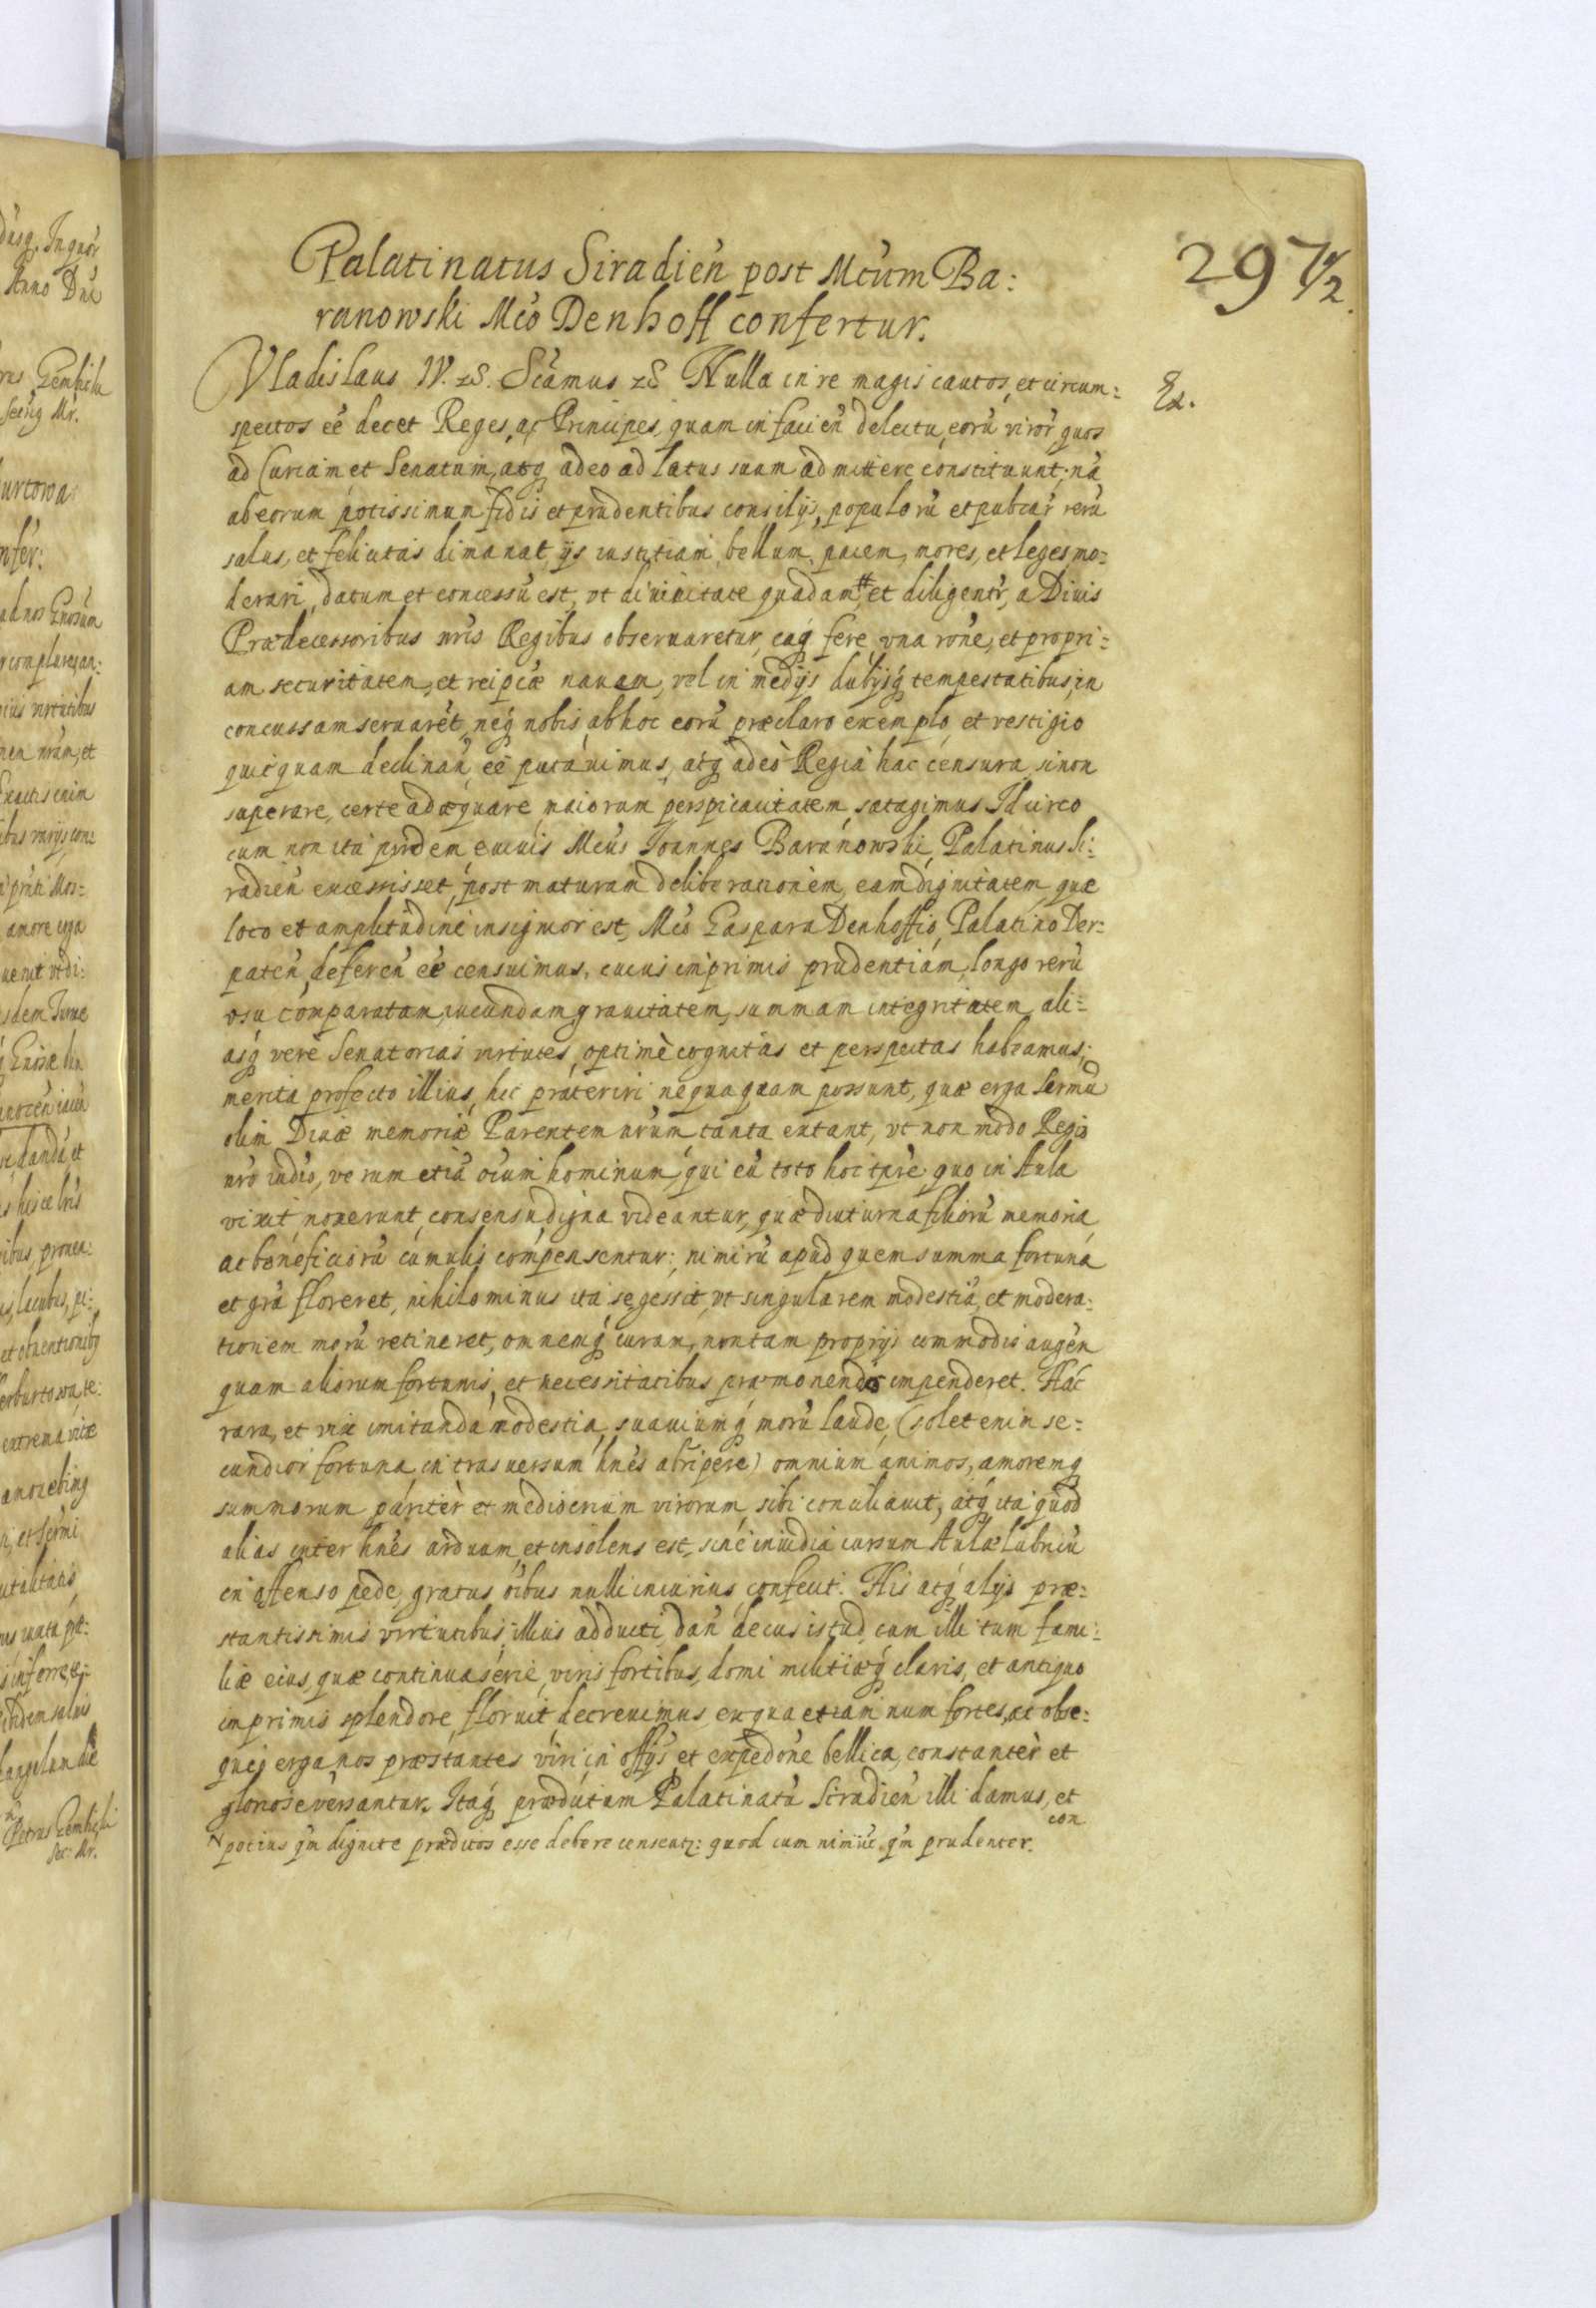 Palatinatus Siradien̄ post Mcūm Ba:
ranowski Mcō Denhoff confertur.
297 1/2
Vladislaus IV. &S. Sciamus &S Nulla in re magis cautos, et circum:
Ex.
spectos eē decet Reges, ac Principes, quam in facien̄ delectu, eorū viror̄ quos
ad Curiam et Senatum, atq adeo ad latus suum admittere constituunt. nā
ab eorum potissimum fidis et prudentibus consilijs, populorū et pubcar̄ rerū
salus, et felicitas dimanat, ijs iustitiam, bellum, pacem, mores, et leges mo=
derari, datum et concessū est, vt divinitate quadam # et diligentr̄, a Divis
Prædecessoribus nr̄is Regibus observaretur, eaq́ fere vna rōne, et propri=
am securitatem, et reipcæ navem, vel in medijs dubijsq́ tempestatibus, in
concussam servarēt, neq́ nobis ab hoc eorū præclaro exemplo, et vestigio
quicquam declinan̄ eē putavimus, atq́ adeò Regia hac censura, si non
superare, certe adæquare maiorum perspicacitatem, satagimus Idcirco
cum non ita pridem e vivis Mcus Ioannes Baranowski, Palatinus Si:
radien̄ excessisset, post maturam deliberationem, eam dignitatem, quæ
loco et amplitudine insignior est, Mcō Gaspara Denhoffio, Palatino Der=
paten̄, deferen̄ eē censuimus, cuius imprimis prudentiam, longo rerū
vsu comparatam, iucundam gravitatem, summam integritatem, ali=
asq́ verē Senatorias virtutes, optimè cognitas et perspectas habeamus,
merita profecto illius, hic præteriri nequaquam possunt, quæ erga Sermū
olim Divæ memoriæ Parentem nr̄um, tanta extant, vt non modo Regio
nr̄o iudio, verum etiā oīum hominum, qui eū toto hoc tpr̄e, quo in Aula
vixit noverunt consensu digna videantur, quæ diuturna filiorū memoria
ac beneficiorū cumulis compensentur: nimirū apud quem summa fortuna
et grā floreret, nihilominus ita se gessit, vt singularem modestiā, et modera=
tionem morū retineret, omnemq́ curam, non tam proprijs commodis augen̄
quam aliorum fortunis, et necessitatibus præmonendis impenderet. Hac
rara, et vix imitanda modestia, suaviumq́ morū laude, (solet enim se=
cundior fortuna in trasversum hn̄es abripere) omnium animos, amoremq
summorum pariter et mediocrium virorum, sibi conciliavit, atq́ ita quod
alias inter hn̄es arduum, et insolens est, sine invidia cursum Aulæ lubricū
inoffenso pede, gratus oībus nulli iniurius confecit. His atq́ alijs præ=
stantissimis virtutibus illius adducti, dan̄ decus istud, cum illi tum fami=
liæ eius, quæ continua serie, viris fortibus, domi militiæq́ claris, et antiquo
imprimis splendore floruit, decrevimus, ex qua etiam num fortes, ac obse=
quij erga nos præstantes viri in offijs, et expedōne bellica, constantèr et
gloriose versantur. Itaq́ prædictum Palatinatū Siradien̄ illi damus, et
con
# potius qm̄ dignite præditos esse debere censeatr: quod cum nimiū qm̄ prudenter.